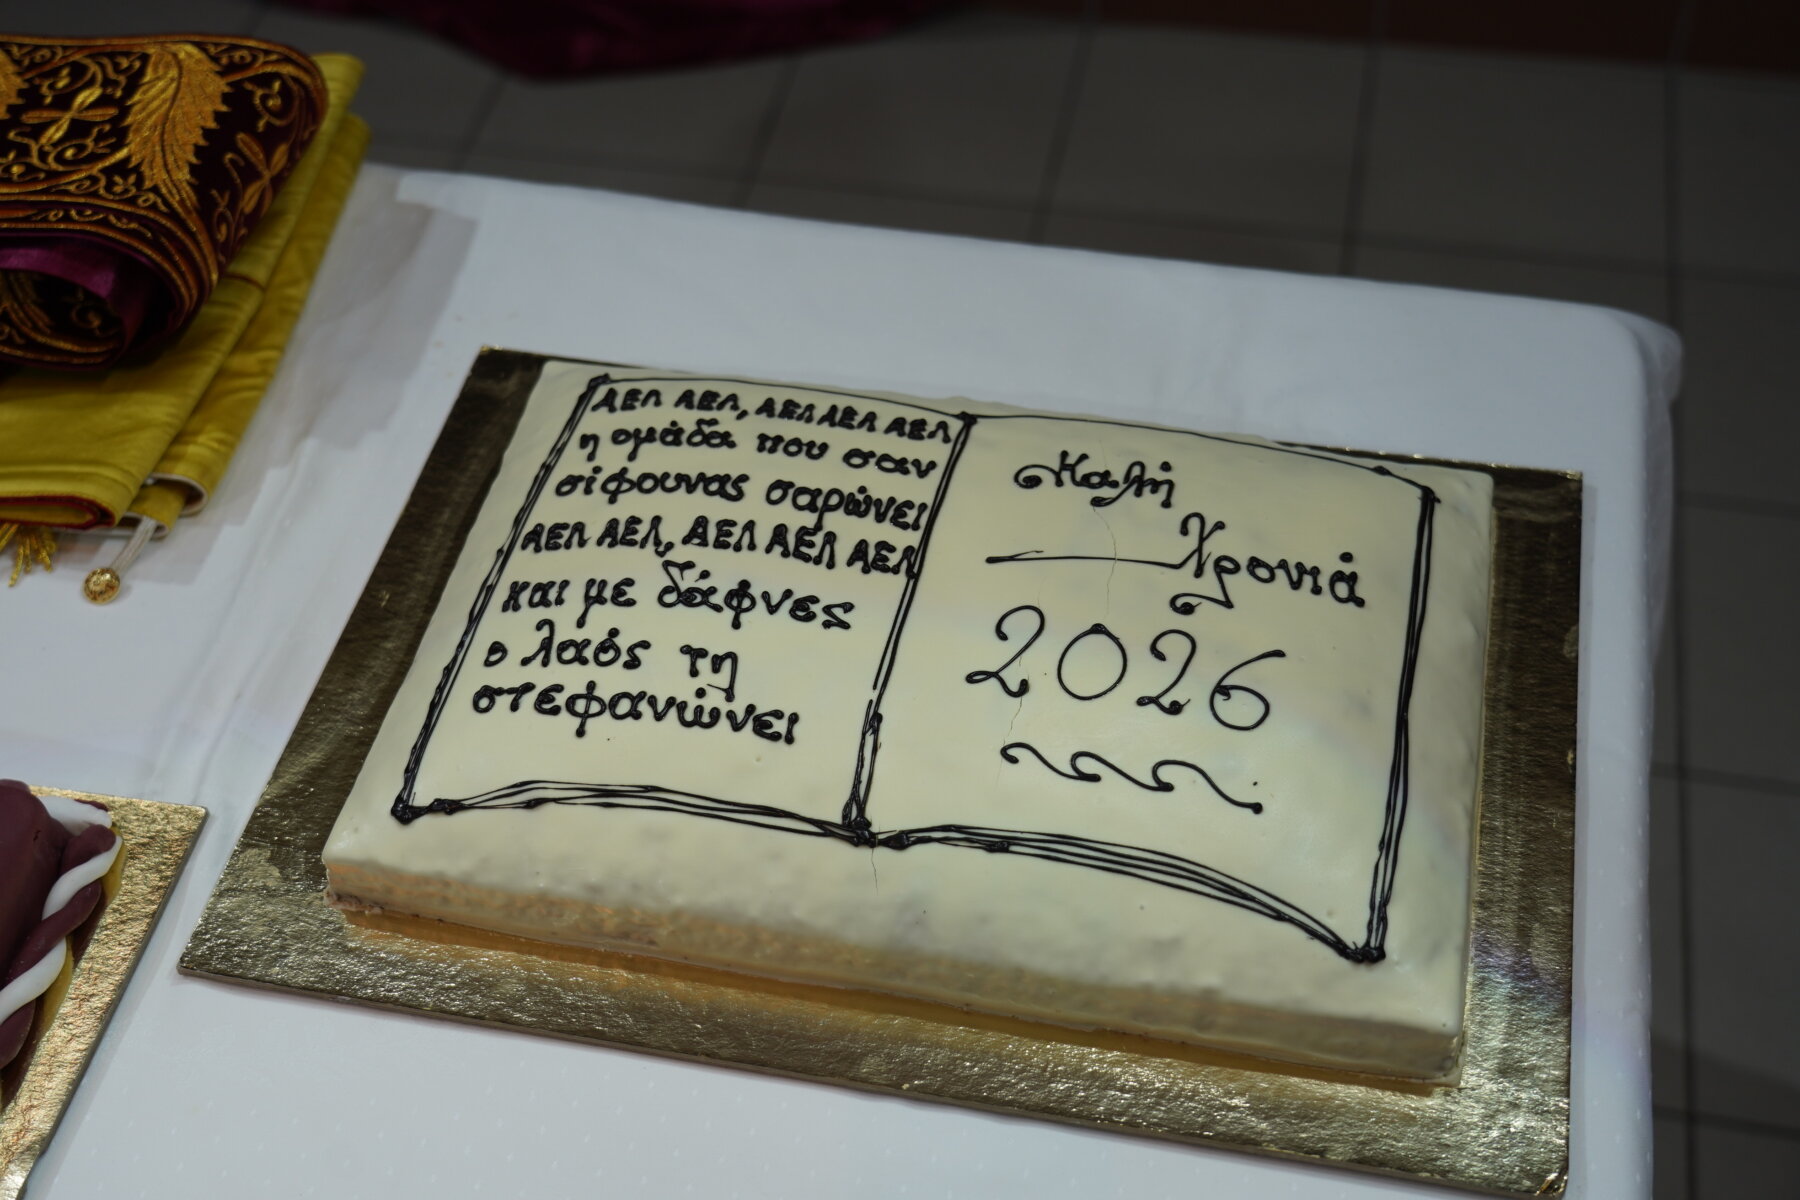 ΑΕΛ ΑΕΛ, ΑΕΛ ΑΕΛ ΑΕΛ
η ομάδα που σαν
σίφουνας σαρώνει
ΑΕΛ ΑΕΛ, ΑΕΛ ΑΕΛ ΑΕΛ
και με δάφνες
ο λαός τη
στεφανώνει
Καλή
Χρονιά
2026